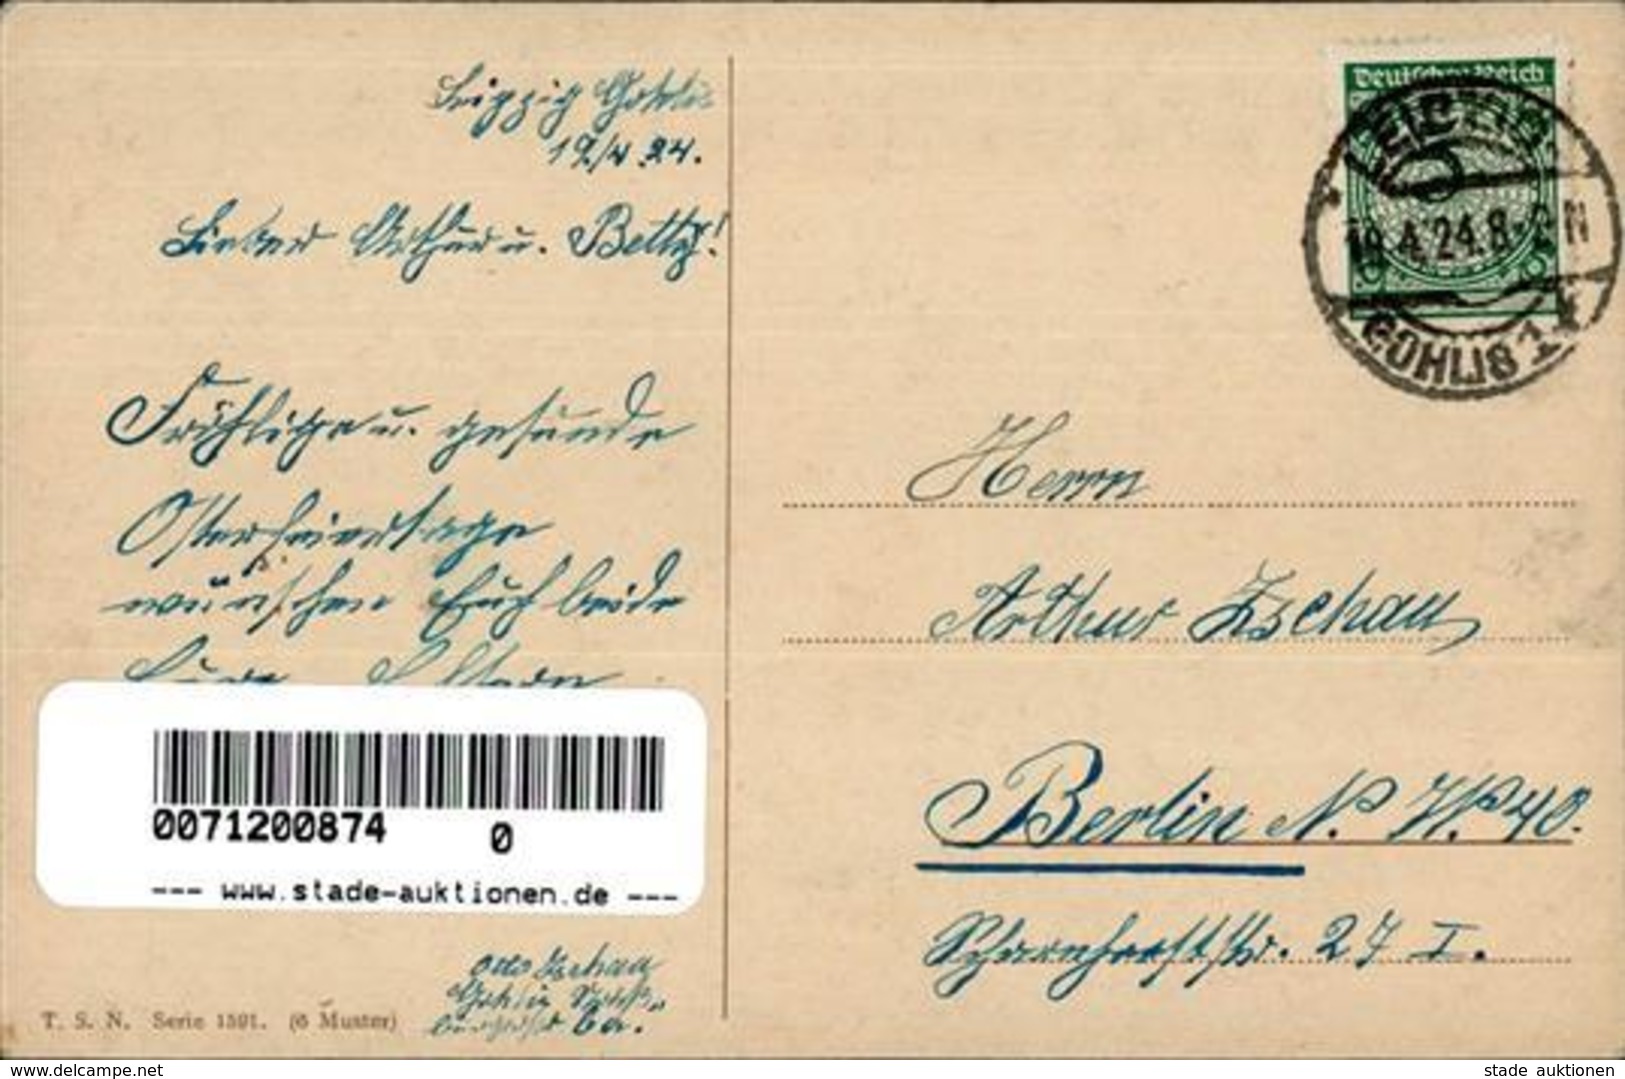 Leipzig Gohlis
19./4.24.
Lieber Arthur u. Betty!
Fröhliche u. gesunde
Osterfeiertage
wünschen Euch beide
Eure Eltern
0071200874 0
--- www.stade-auktionen.de ---
Otto Zschau
Gohlis
6a.
T. S. N. Serie 1591. (6 Muster)
Deutsches Reich
LEIPZIG
19.4.24.8-9N
GOHLIS 1
Herrn
Arthur Zschau
Berlin N. W. 40.
Scharnhorststr. 27 I.
delcampe.net
stade auktionen